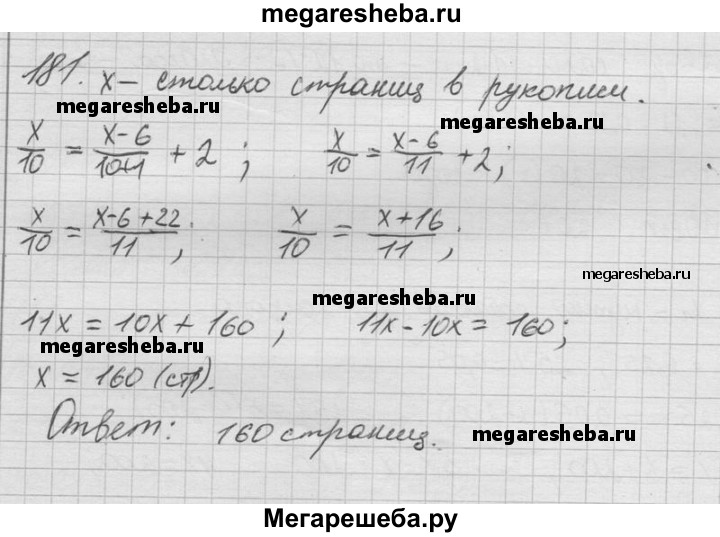 megaresheba.ru
181. x – столько страниц в рукописи.
megaresheba.ru
megaresheba.ru
x/10 = (x-6)/(10+1) + 2 ; x/10 = (x-6)/11 + 2;
x/10 = (x-6+22)/11 ; x/10 = (x+16)/11 ;
megaresheba.ru
megaresheba.ru
11x = 10x + 160 ; 11x - 10x = 160;
megaresheba.ru
x = 160 (стр).
Ответ: 160 страниц.
megaresheba.ru
Мегарешеба.ру